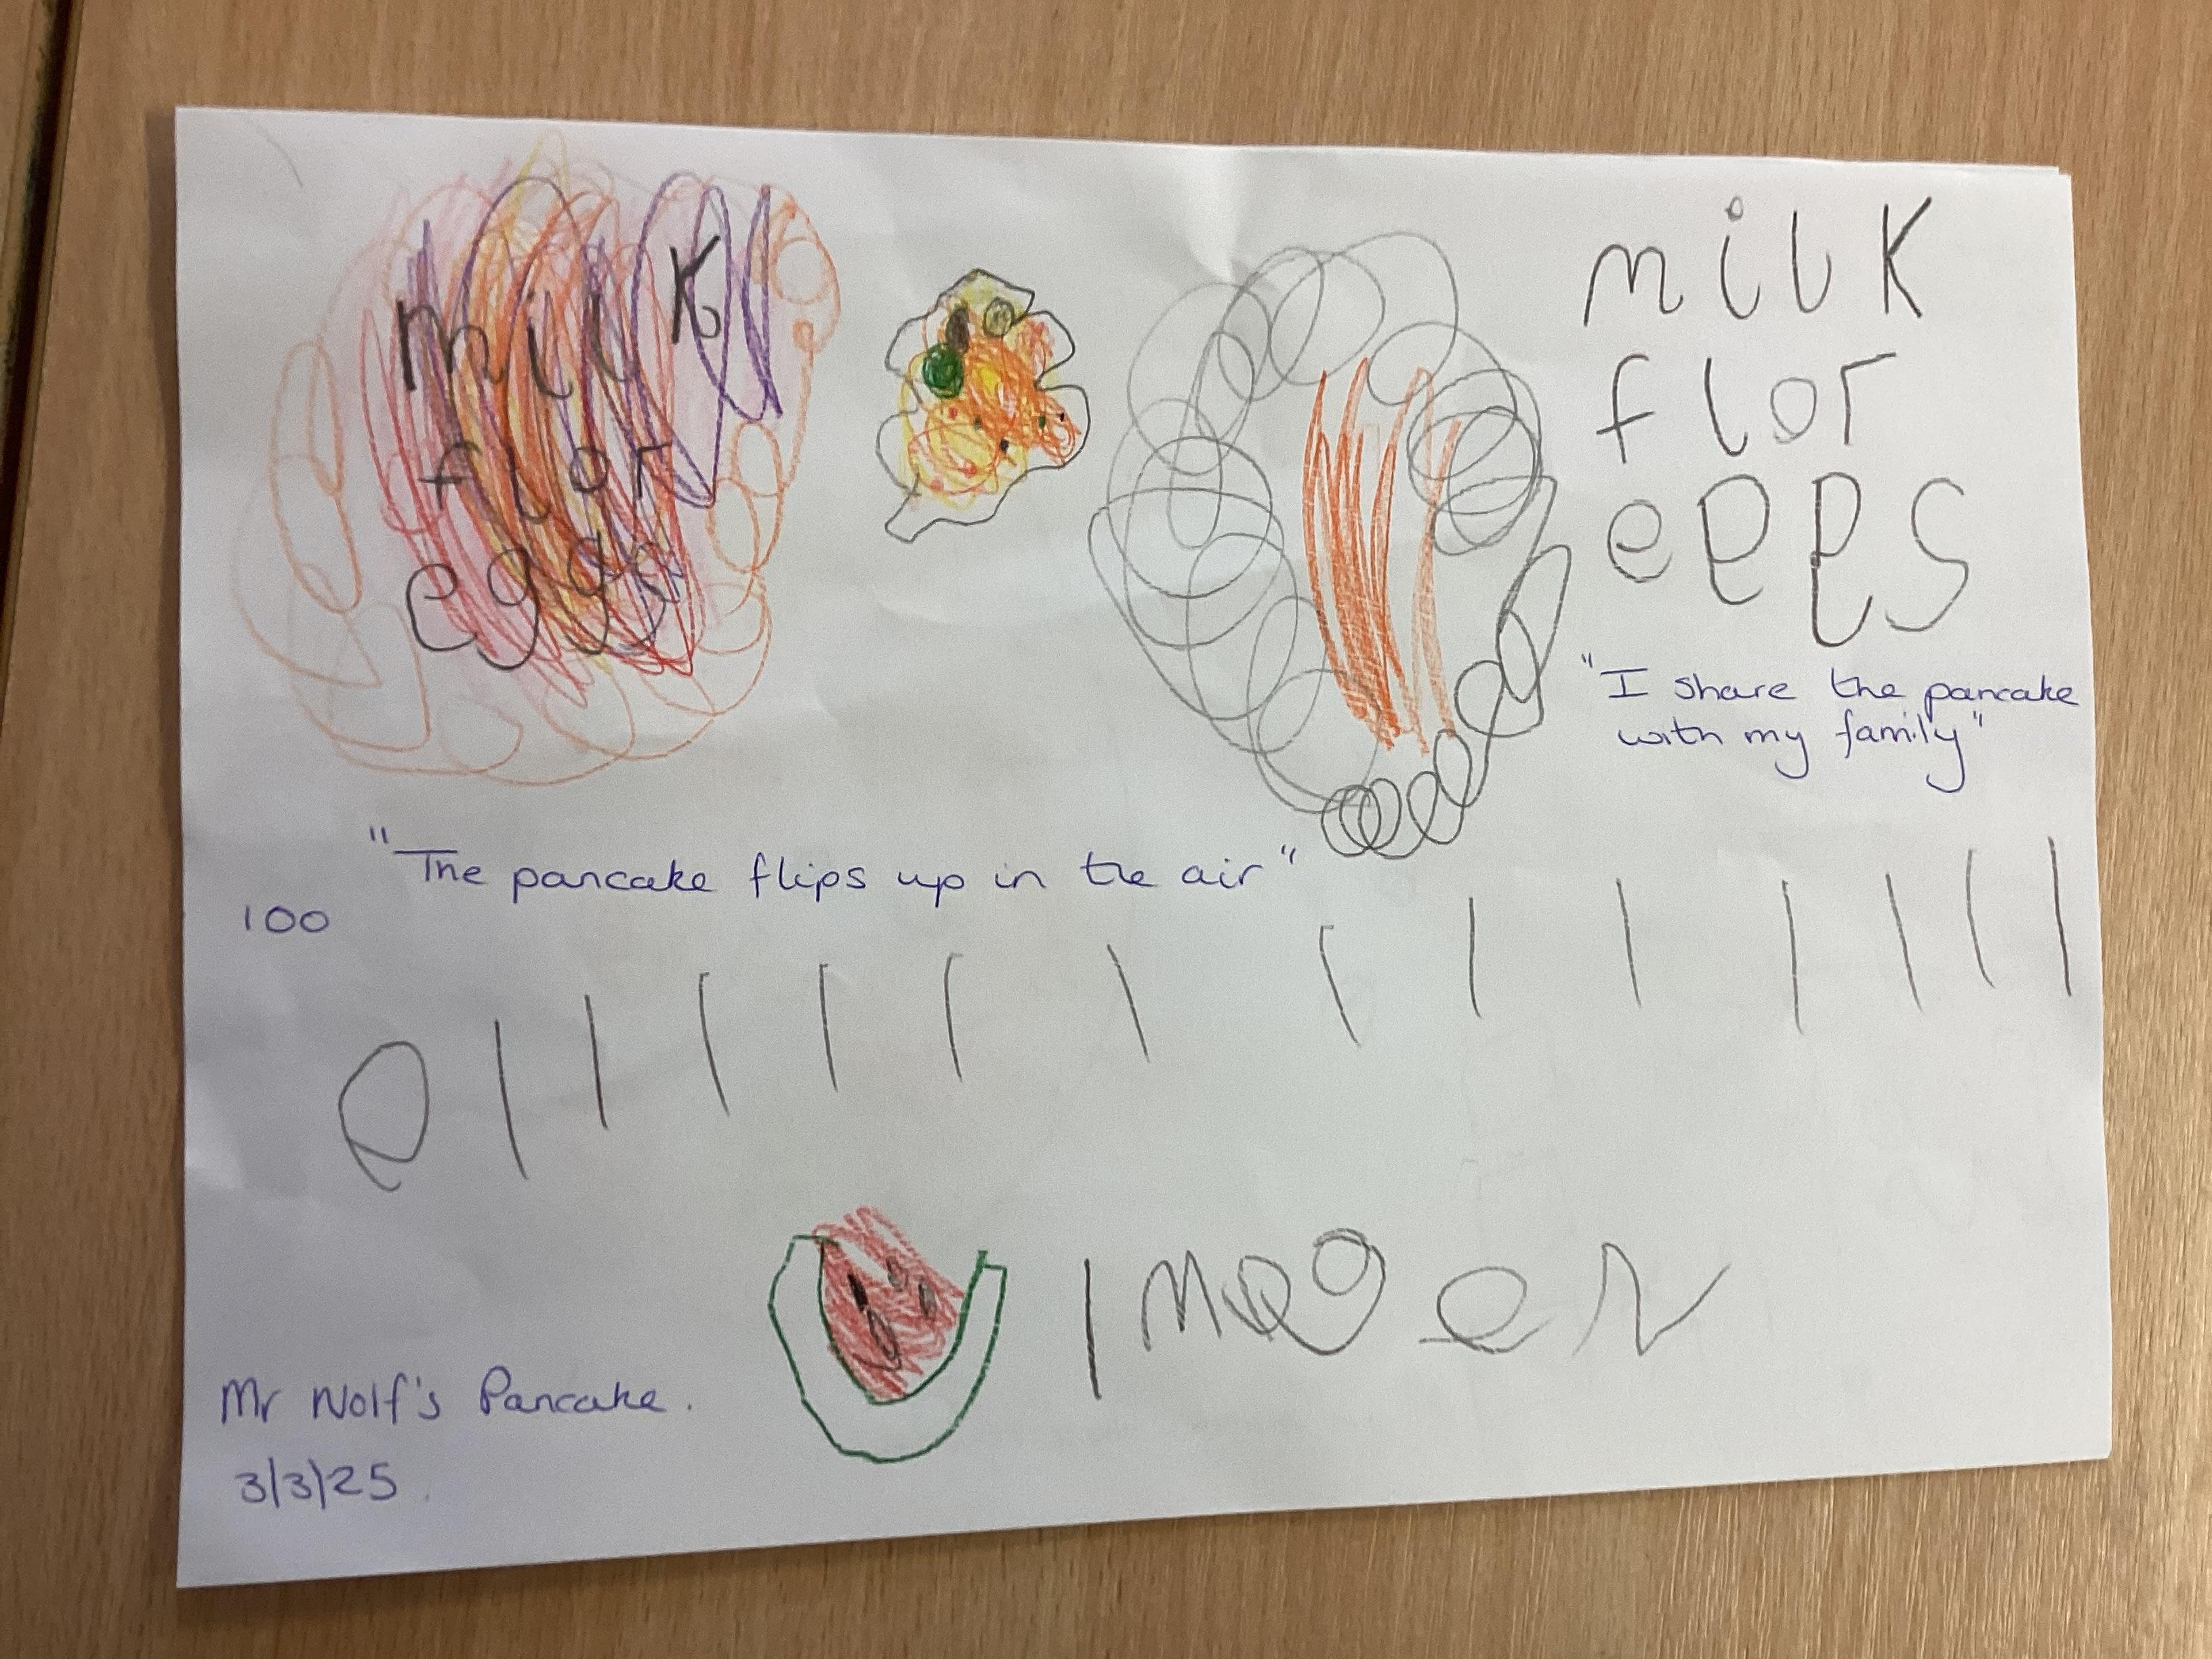 milk
flor
eggs
milk
flor
eggs
"I share the pancake
with my family"
"The pancake flips up in the air"
100
Mr Wolf's Pancake.
3/3/25.